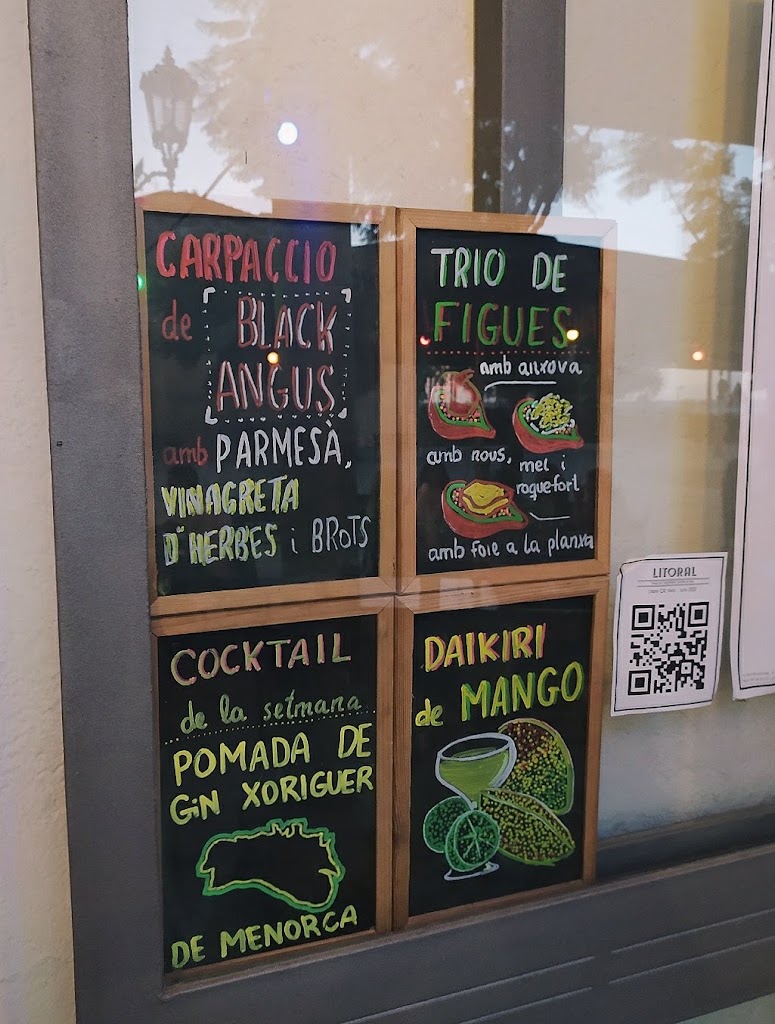 CARPACCIO
de BLACK
ANGUS
amb PARMESÀ,
VINAGRETA
D'HERBES i BROTS
TRIO DE
FIGUES
amb anxova
amb nous, mel i
roquefort
amb foie a la planxa
COCKTAIL
de la setmana
POMADA DE
GiN XORIGUER
DE MENORCA
DAIKIRI
de MANGO
LITORAL